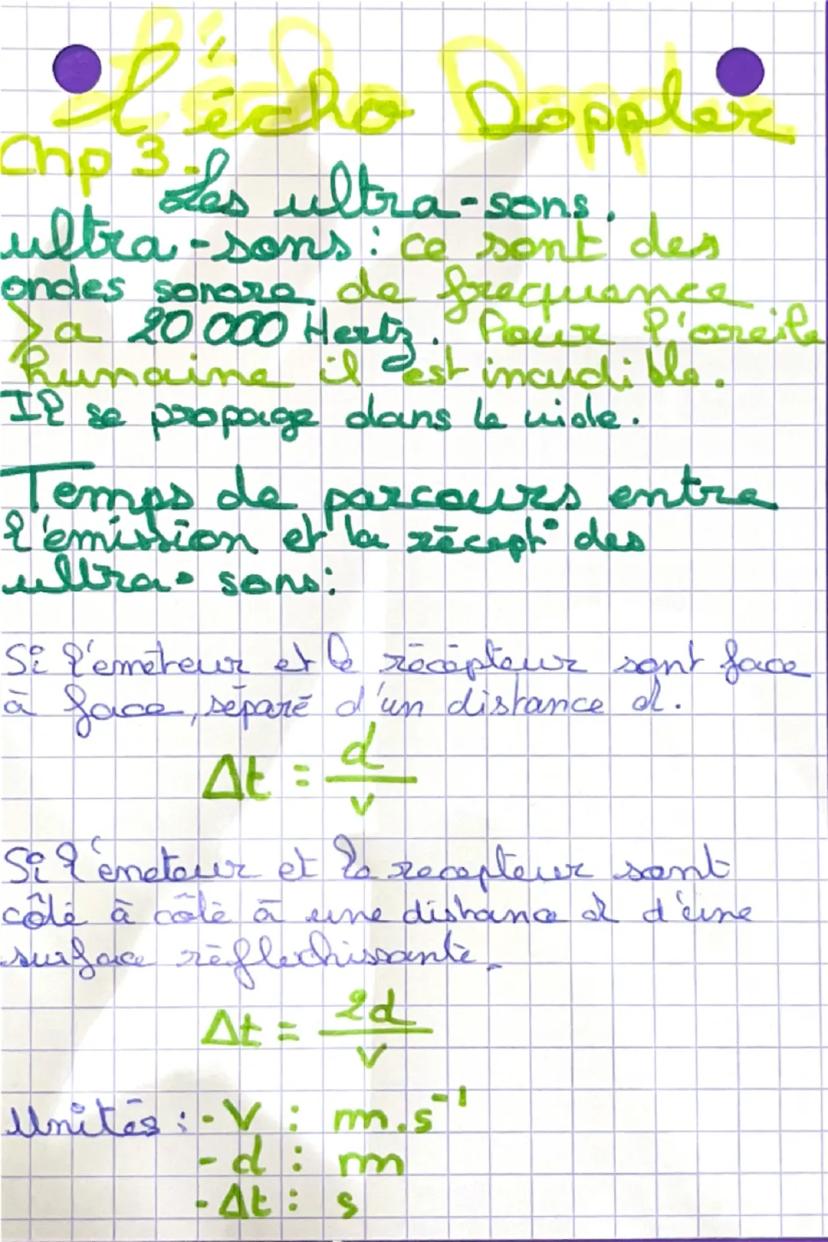 L'écho Doppler
Chp 3.
Les ultra-sons.
ultra-sons : ce sont des
ondes sonore de frequence
> a 20 000 Hertz. Pour l'oreile
humaine il est inaudible.
Il se propage dans le vide.
Temps de parcours entre
l'emission et la récept° des
ultra-sons :
Si l'eméteur et le récépteur sont face
à face, séparé d'un distance d.
Δt = d/v
Si l'emeteur et le recepteur sont
côté à côté à une distance d d'une
surface réflechissante.
Δt = 2d/v
Unités : - V : m.s⁻¹
- d : m
- Δt : s